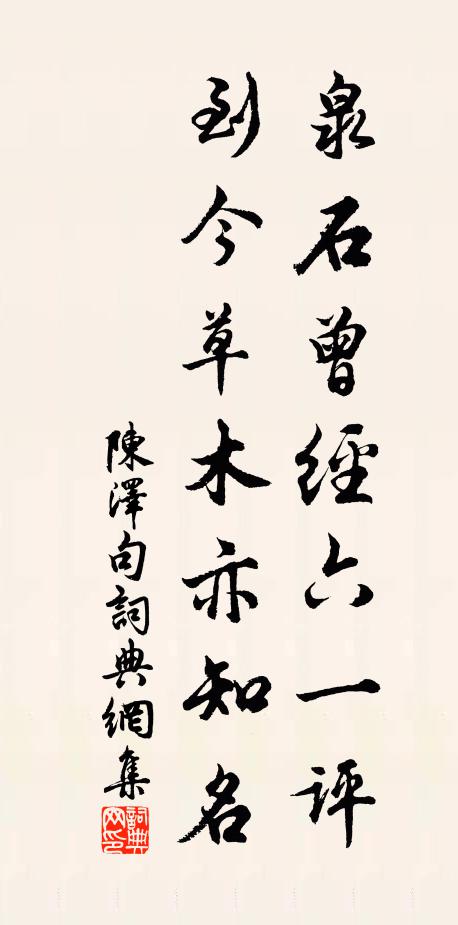 泉石曾經六一評
到今草木亦知名
陳澤句詞典網集
詞典
网印